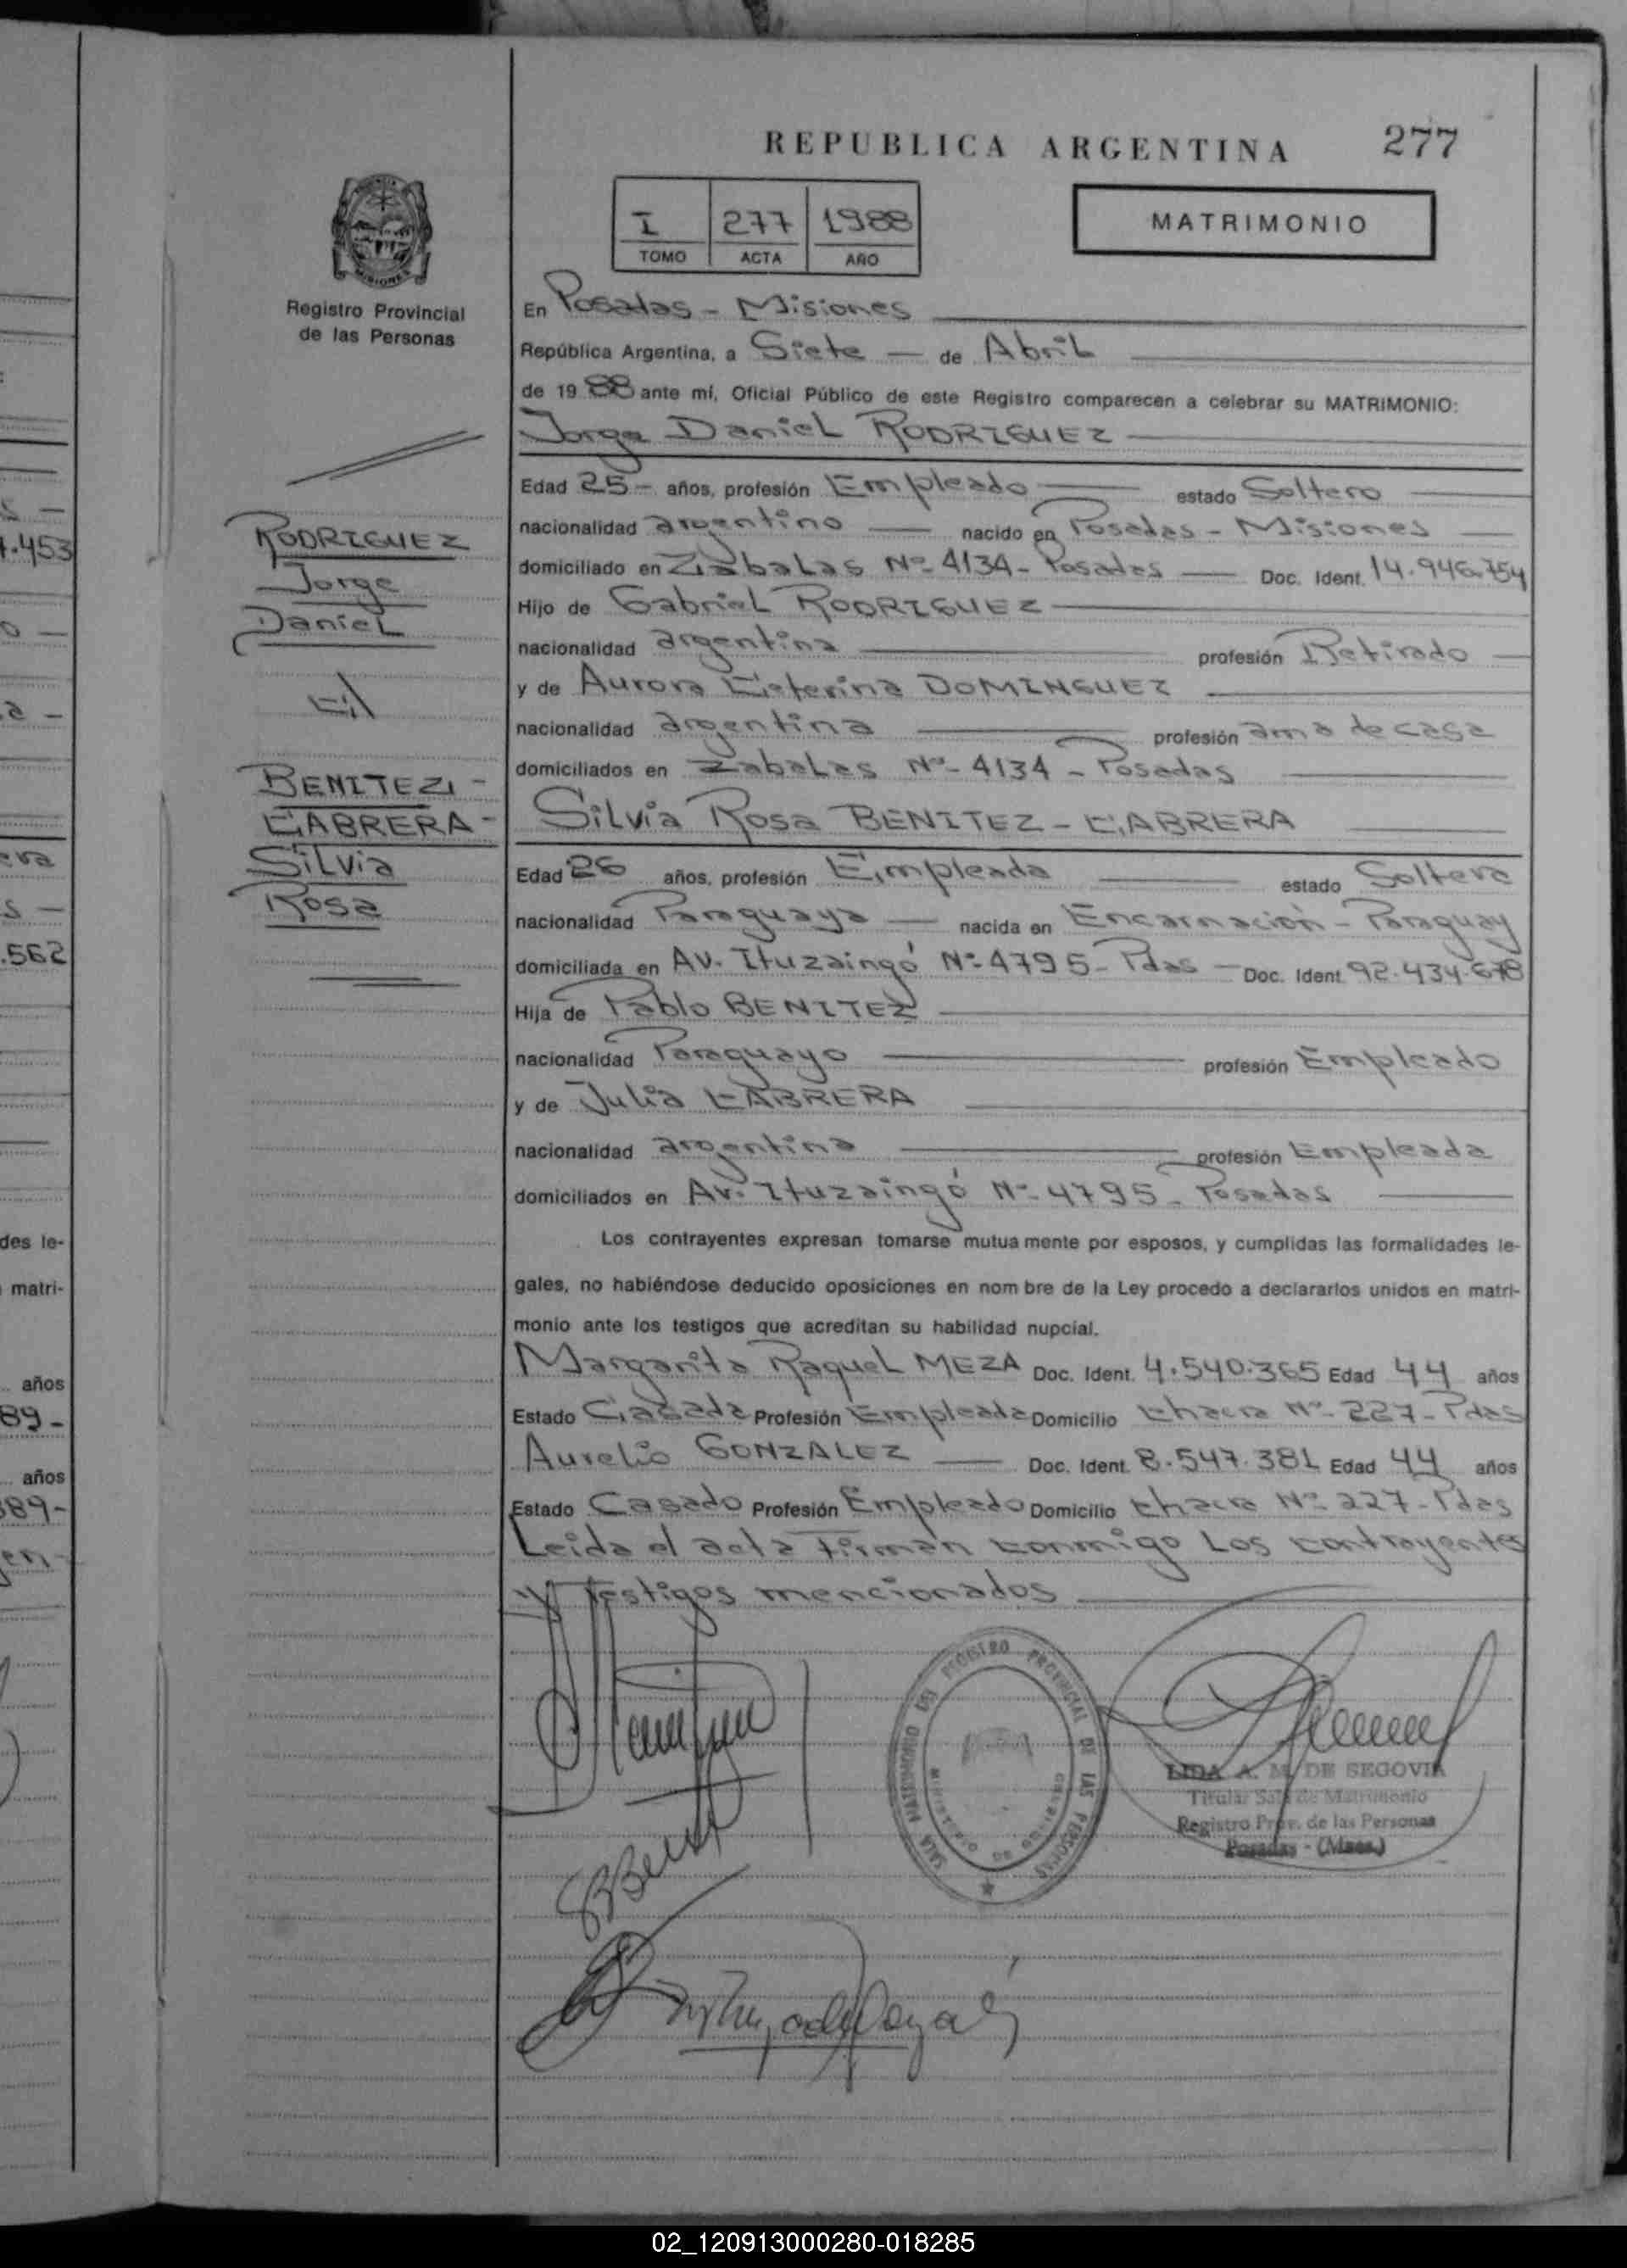 REPUBLICA ARGENTINA 277
I 277 1988
TOMO ACTA AÑO
MATRIMONIO
MISIONES
Registro Provincial
de las Personas
En Posadas - Misiones
República Argentina, a Siete — de Abril
de 19 88 ante mí, Oficial Público de este Registro comparecen a celebrar su MATRIMONIO:
Jorge Daniel RODRIGUEZ
Edad 25 - años, profesión Empleado estado Soltero
nacionalidad argentino nacido en Posadas - Misiones
domiciliado en Zabalas Nº 4134 - Posadas Doc. Ident. 14.946.754
Hijo de Gabriel RODRIGUEZ
nacionalidad argentina profesión Retirado
y de Aurora Eleterina DOMINGUEZ
nacionalidad argentina profesión ama de casa
domiciliados en Zabalas Nº 4134 - Posadas
Silvia Rosa BENITEZ - CABRERA
Edad 26 años, profesión Empleada estado Soltera
nacionalidad Paraguaya nacida en Encarnación - Paraguay
domiciliada en Av. Ituzaingó Nº 4795 - Pdas - Doc. Ident 92.434.678
Hija de Pablo BENITEZ
nacionalidad Paraguayo profesión Empleado
y de Julia CABRERA
nacionalidad argentina profesión Empleada
domiciliados en Av. Ituzaingó Nº 4795 - Posadas
Los contrayentes expresan tomarse mutua mente por esposos, y cumplidas las formalidades le-
gales, no habiéndose deducido oposiciones en nom bre de la Ley procedo a declararlos unidos en matri-
monio ante los testigos que acreditan su habilidad nupcial.
Margarita Raquel MEZA Doc. Ident. 4.540.365 Edad 44 años
Estado Casada Profesión Empleada Domicilio Chacra Nº 227 - Pdas
Aurelio GONZALEZ Doc. Ident. 8.547.381 Edad 44 años
Estado Casado Profesión Empleado Domicilio Chacra Nº 227 - Pdas
Leida el acta firman conmigo los contrayentes
y testigos mencionados
RODRIGUEZ
Jorge
Daniel
c/
BENITEZ -
CABRERA -
Silvia
Rosa
SALA MATRIMONIO DEL REGISTRO PROVINCIAL DE LAS PERSONAS
MINISTERIO DE GOBIERNO
LIDA A. M. DE SEGOVIA
Titular Sala de Matrimonio
Registro Prov. de las Personas
Posadas - (Mnes.)
.453
.562
des le-
matri-
años
89-
años
389-
en-
02_120913000280-018285